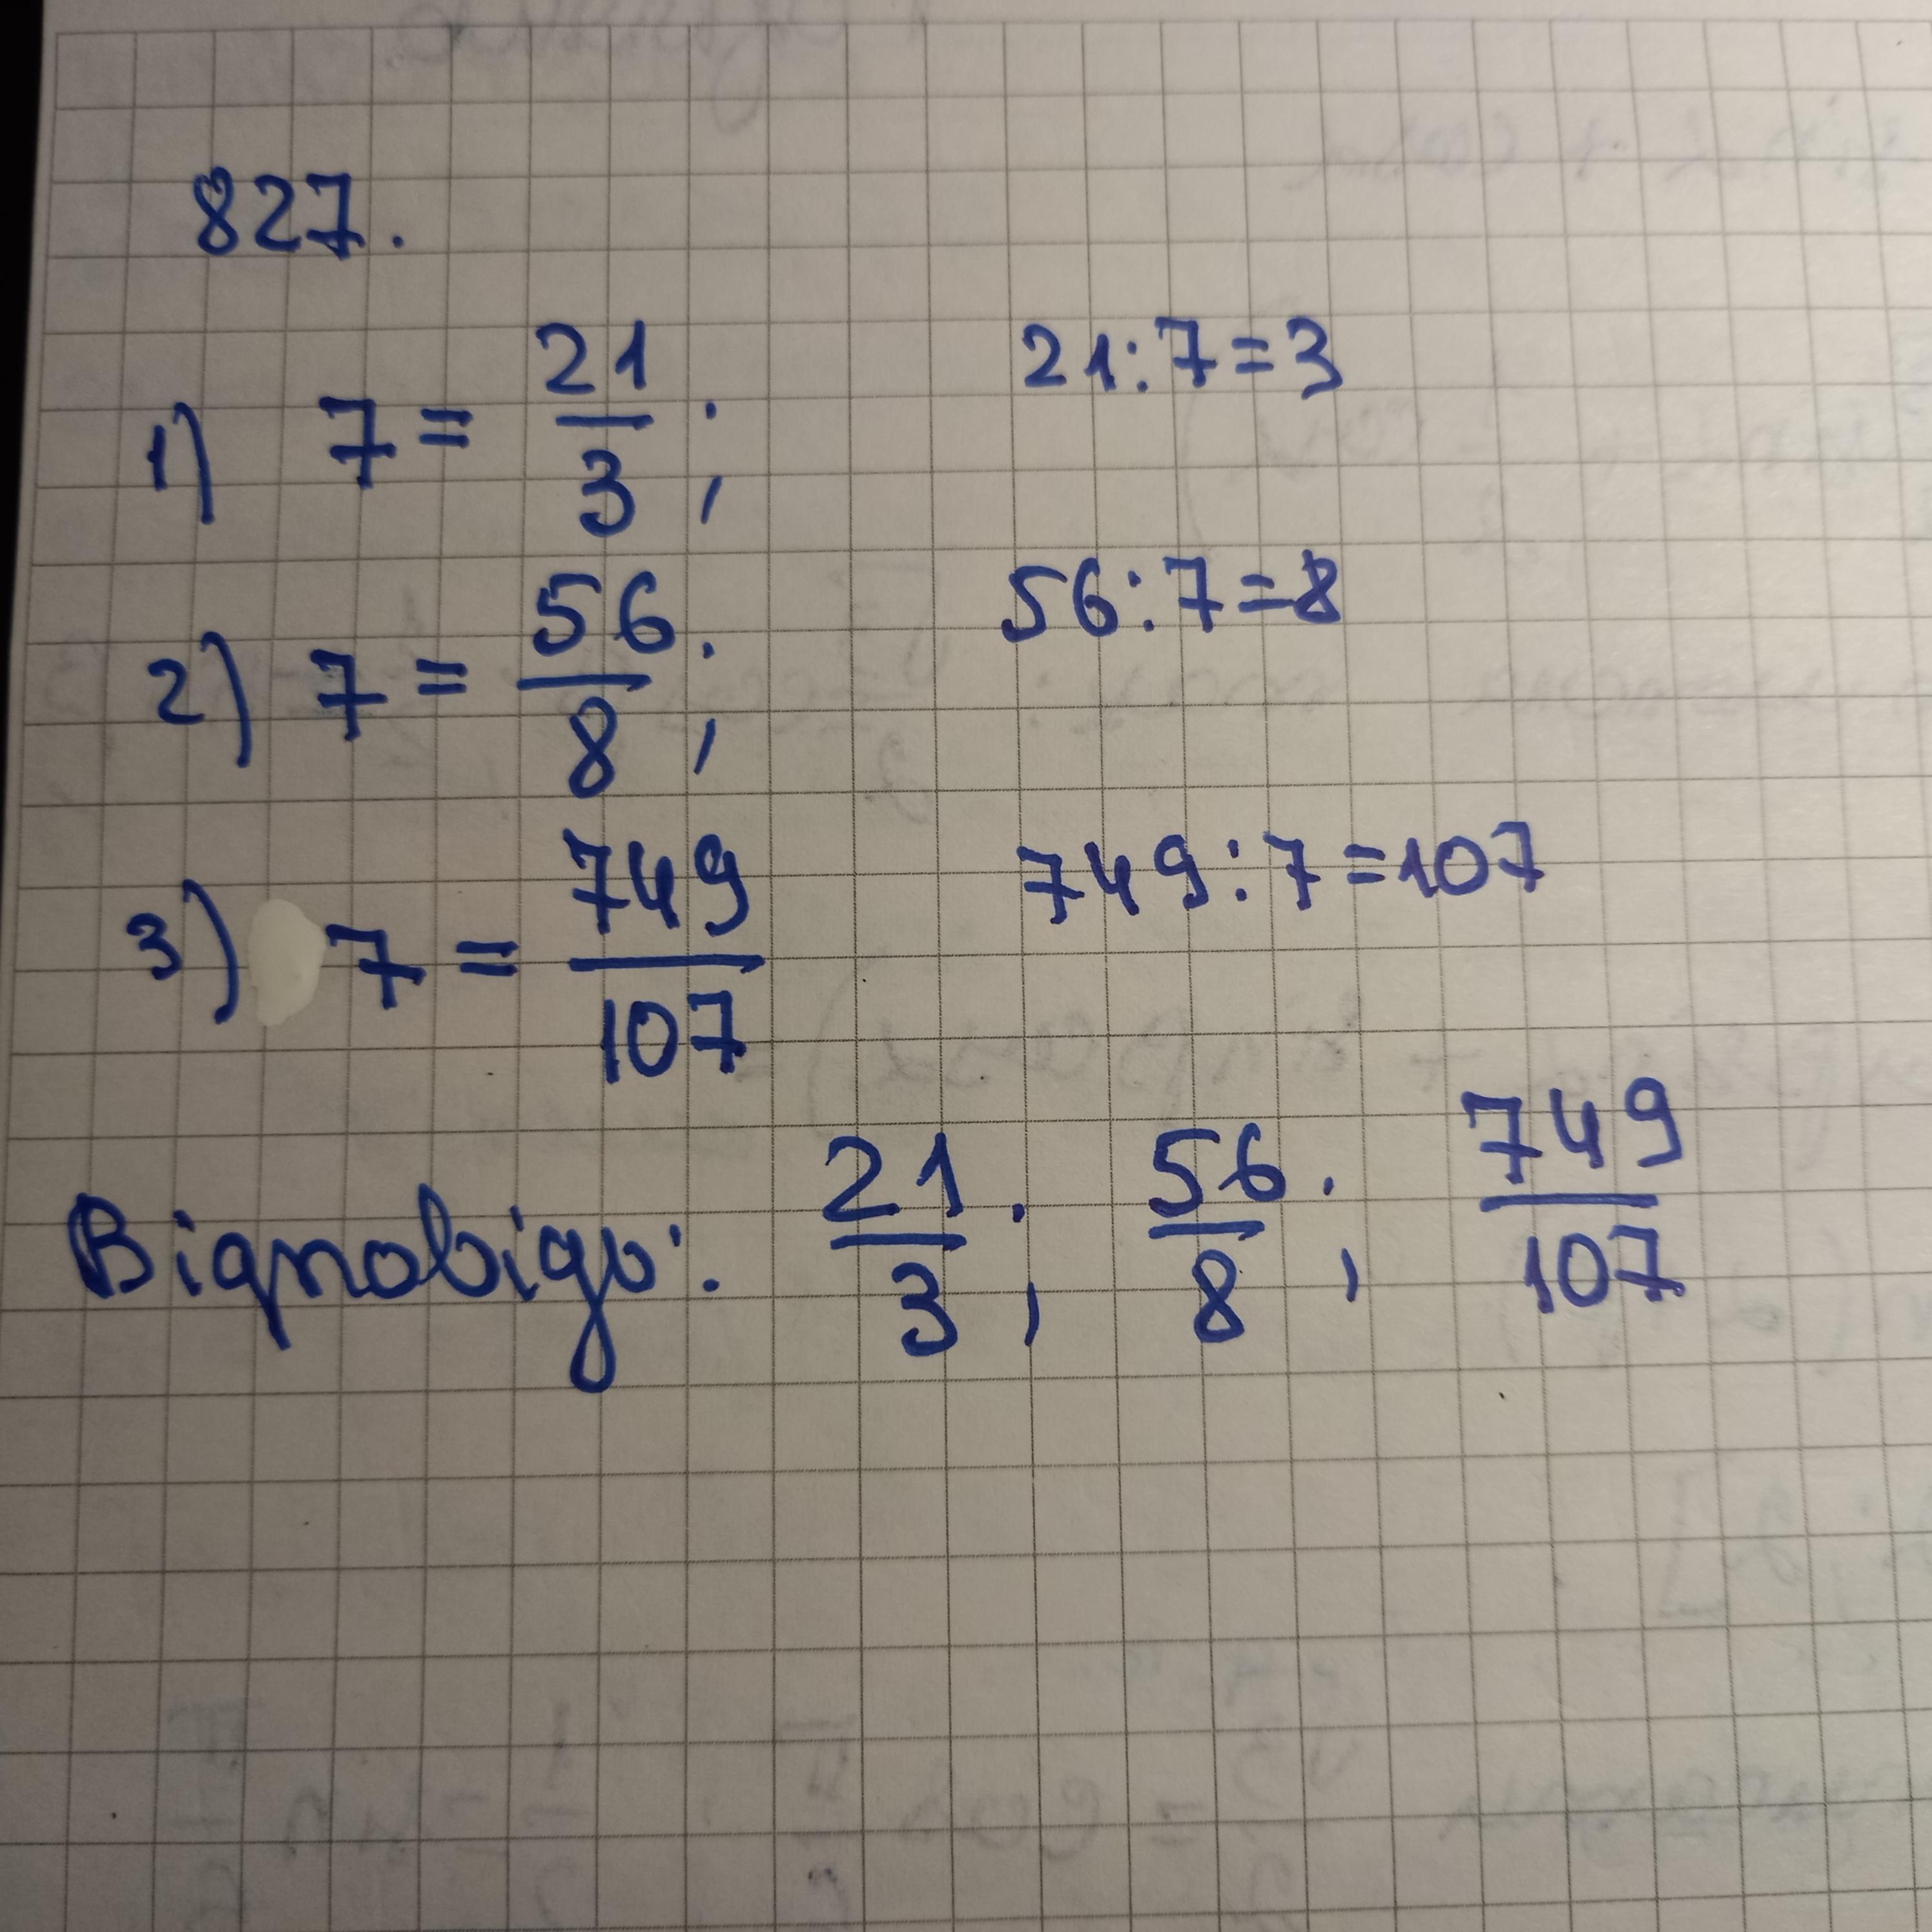 827.
1) 7 = 21/3 ; 21 : 7 = 3
2) 7 = 56/8 ; 56 : 7 = 8
3) 7 = 749/107 749 : 7 = 107
Відповідь: 21/3 ; 56/8 ; 749/107